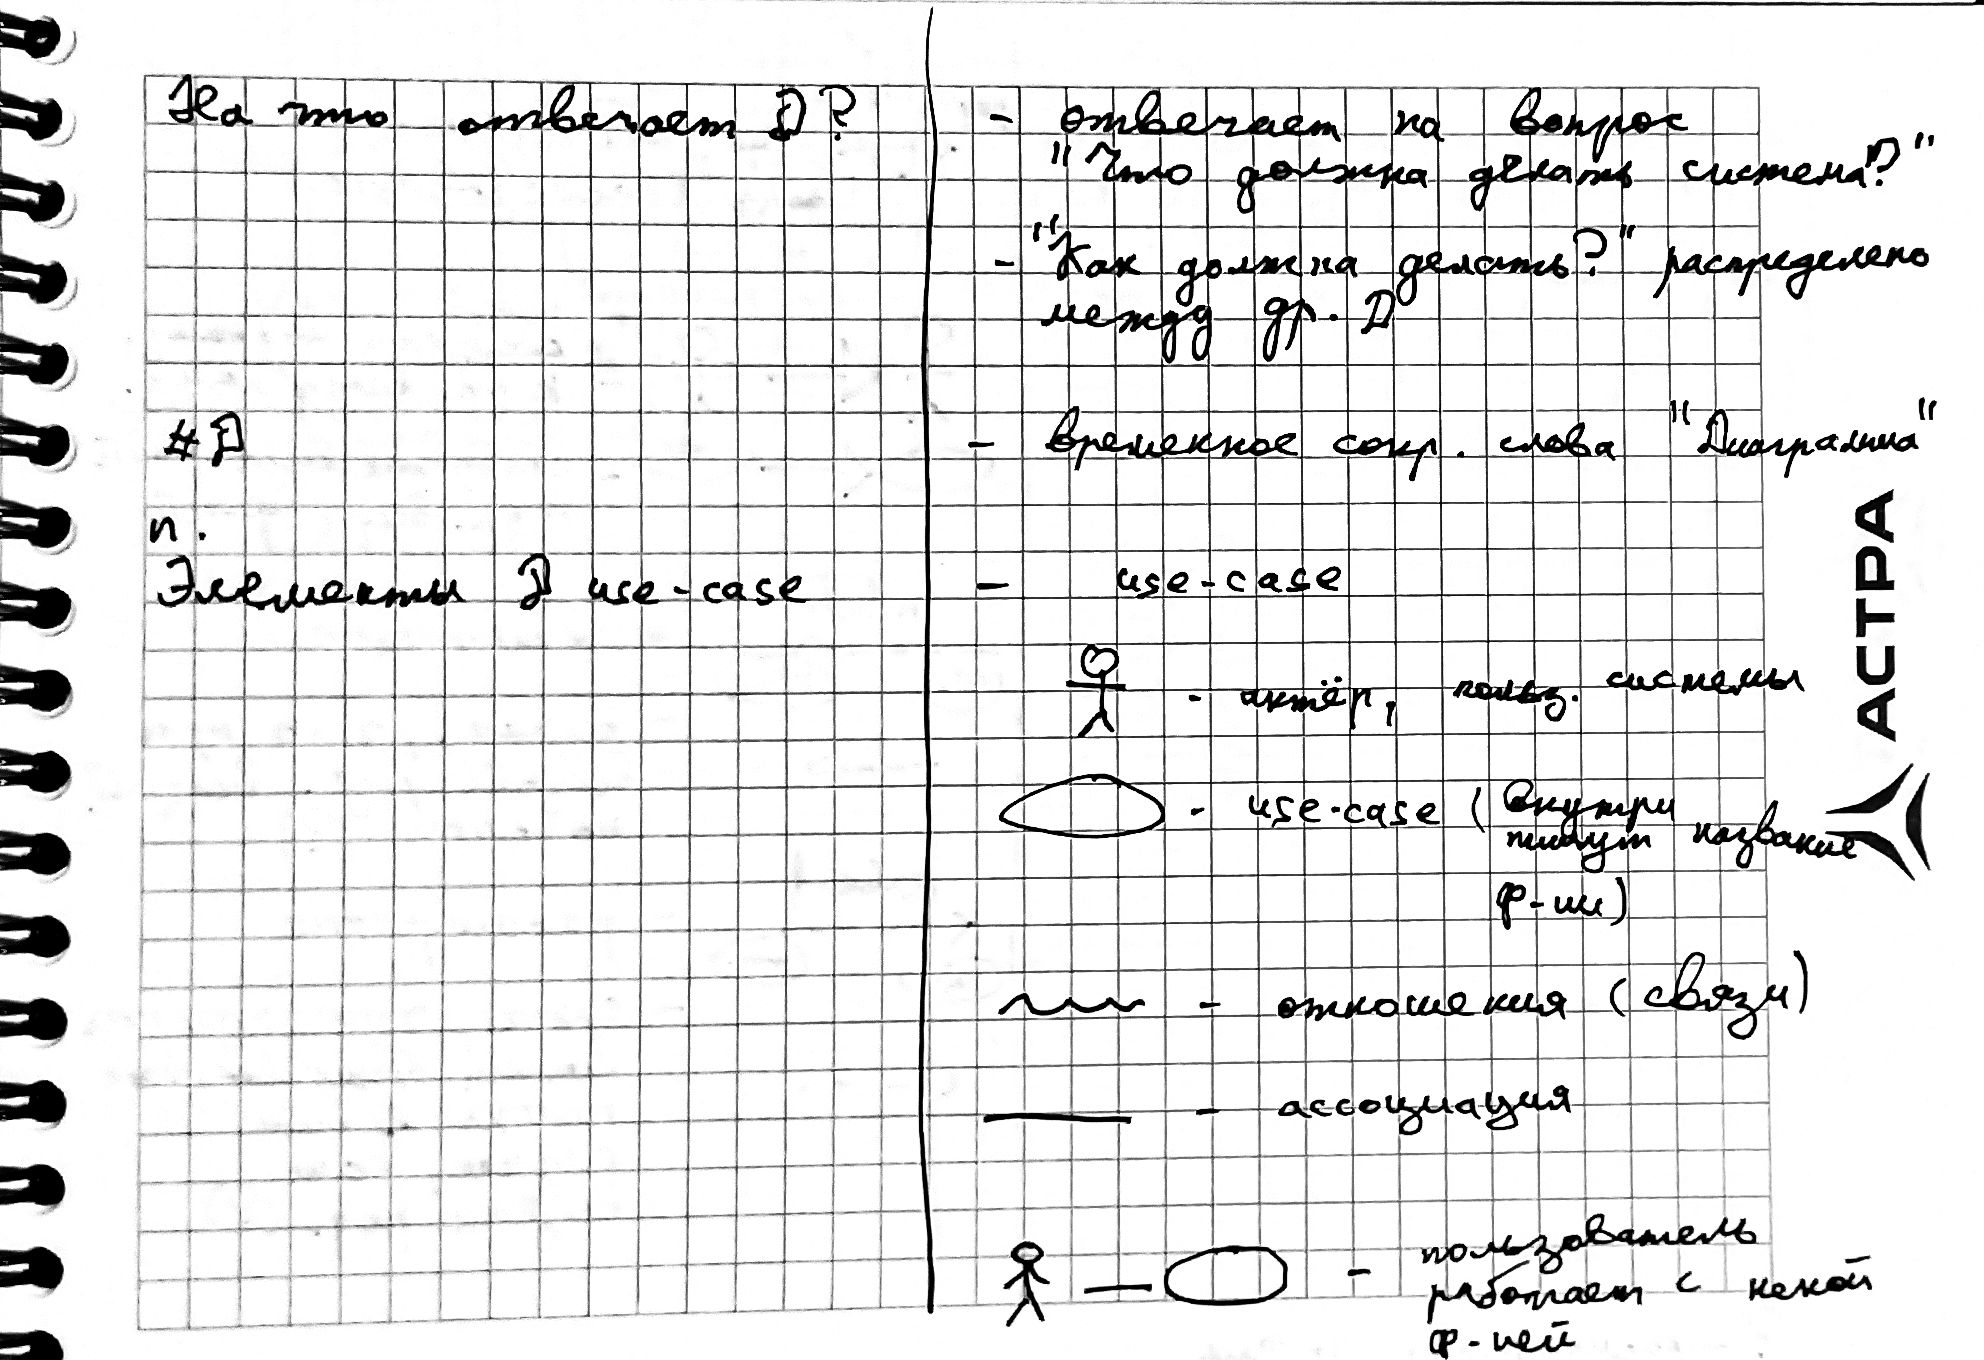 На что отвечает D?
- отвечает на вопрос
"Что должна делать система?"
- "Как должна делать?" распределено
между др. D
# D
- временное сокр. слова "Диаграмма"
п.
Элементы D use-case
- use-case
- актёр, польз. системы
- use-case (Внутри
пишут название
ф-ии)
- отношения (связи)
- ассоциация
- пользователь
работает с некой
ф-ией
АСТРА